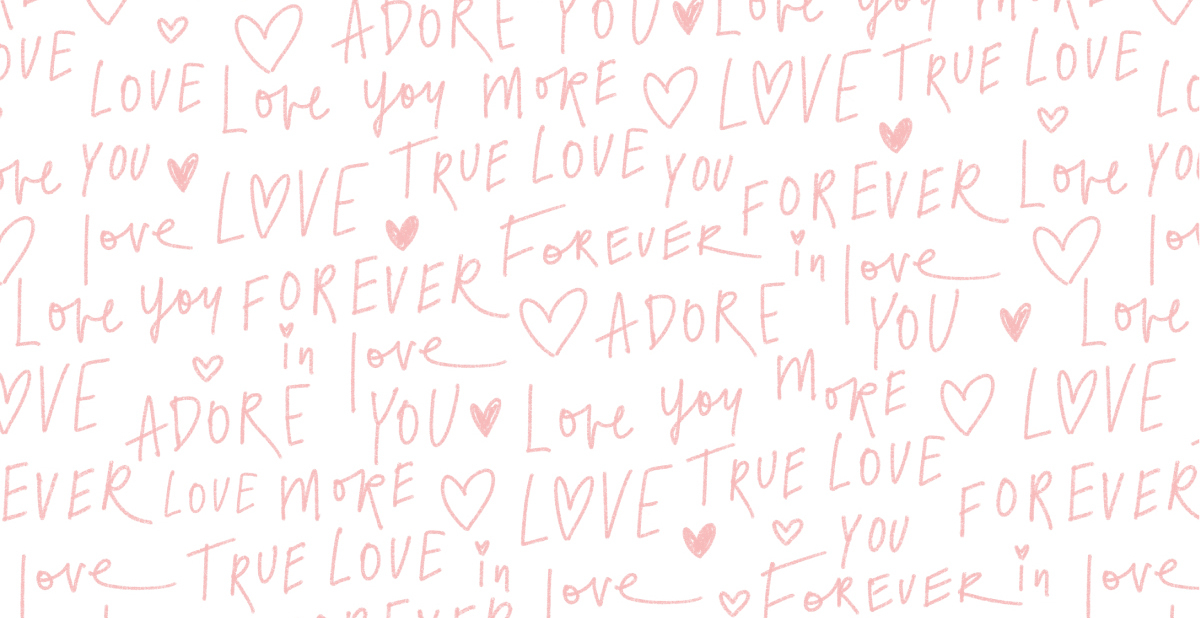 ADORE YOU Love you more
OVE LOVE Love you more LOVE TRUE LOVE
ove you LOVE TRUE LOVE YOU FOREVER Love YOU
love FOREVER in love
Love you FOREVER ADORE YOU Love
in love
OVE ADORE YOU Love you more LOVE
EVER LOVE more LOVE TRUE LOVE FOREVER
love TRUE LOVE in love YOU FOREVER in love